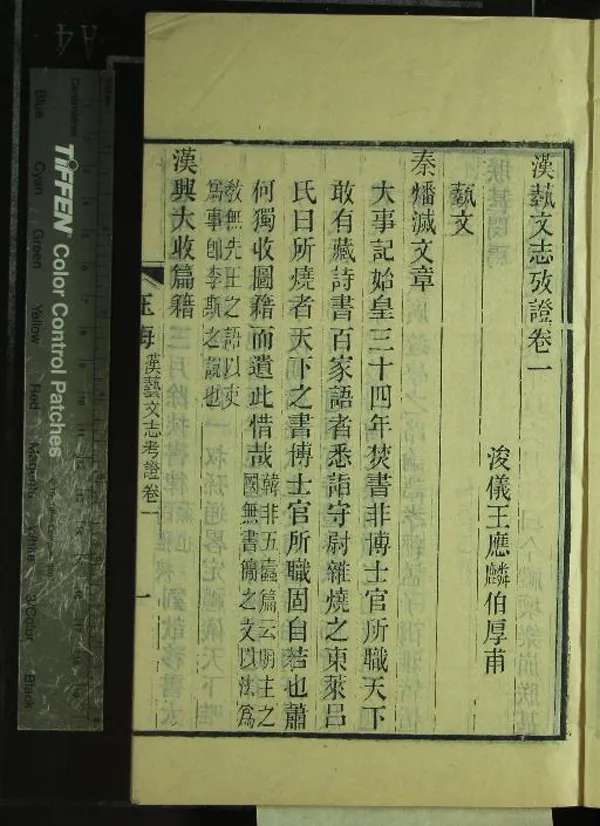 漢藝文志攷證卷一
浚儀王應麟伯厚甫
藝文
秦燔滅文章
大事記始皇三十四年焚書非博士官所職天下
敢有藏詩書百家語者悉詣守尉雜燒之東萊呂
氏曰所燒者天下之書博士官所職固自若也蕭
何獨收圖籍而遺此惜哉韓非五蠹篇云明主之
國無書簡之文以法爲
教無先王之語以吏
爲事卽李斯之說也
漢興大收篇籍
玉海 漢藝文志考證卷一 一
TIFFEN Color Control Patches
Blue
Cyan
Green
Yellow
Red
Magenta
White
3/Color
Black
Centimetres
A4